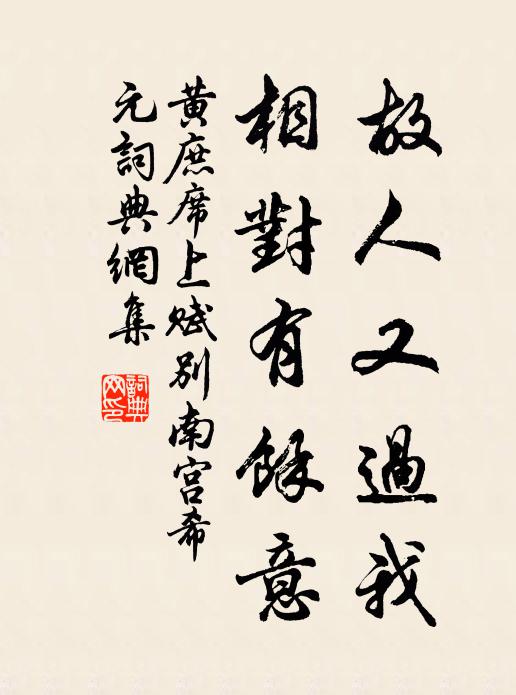 故人又過我
相對有餘意
黃庶席上賦別南宮希
元詞典網集
詞典
網印